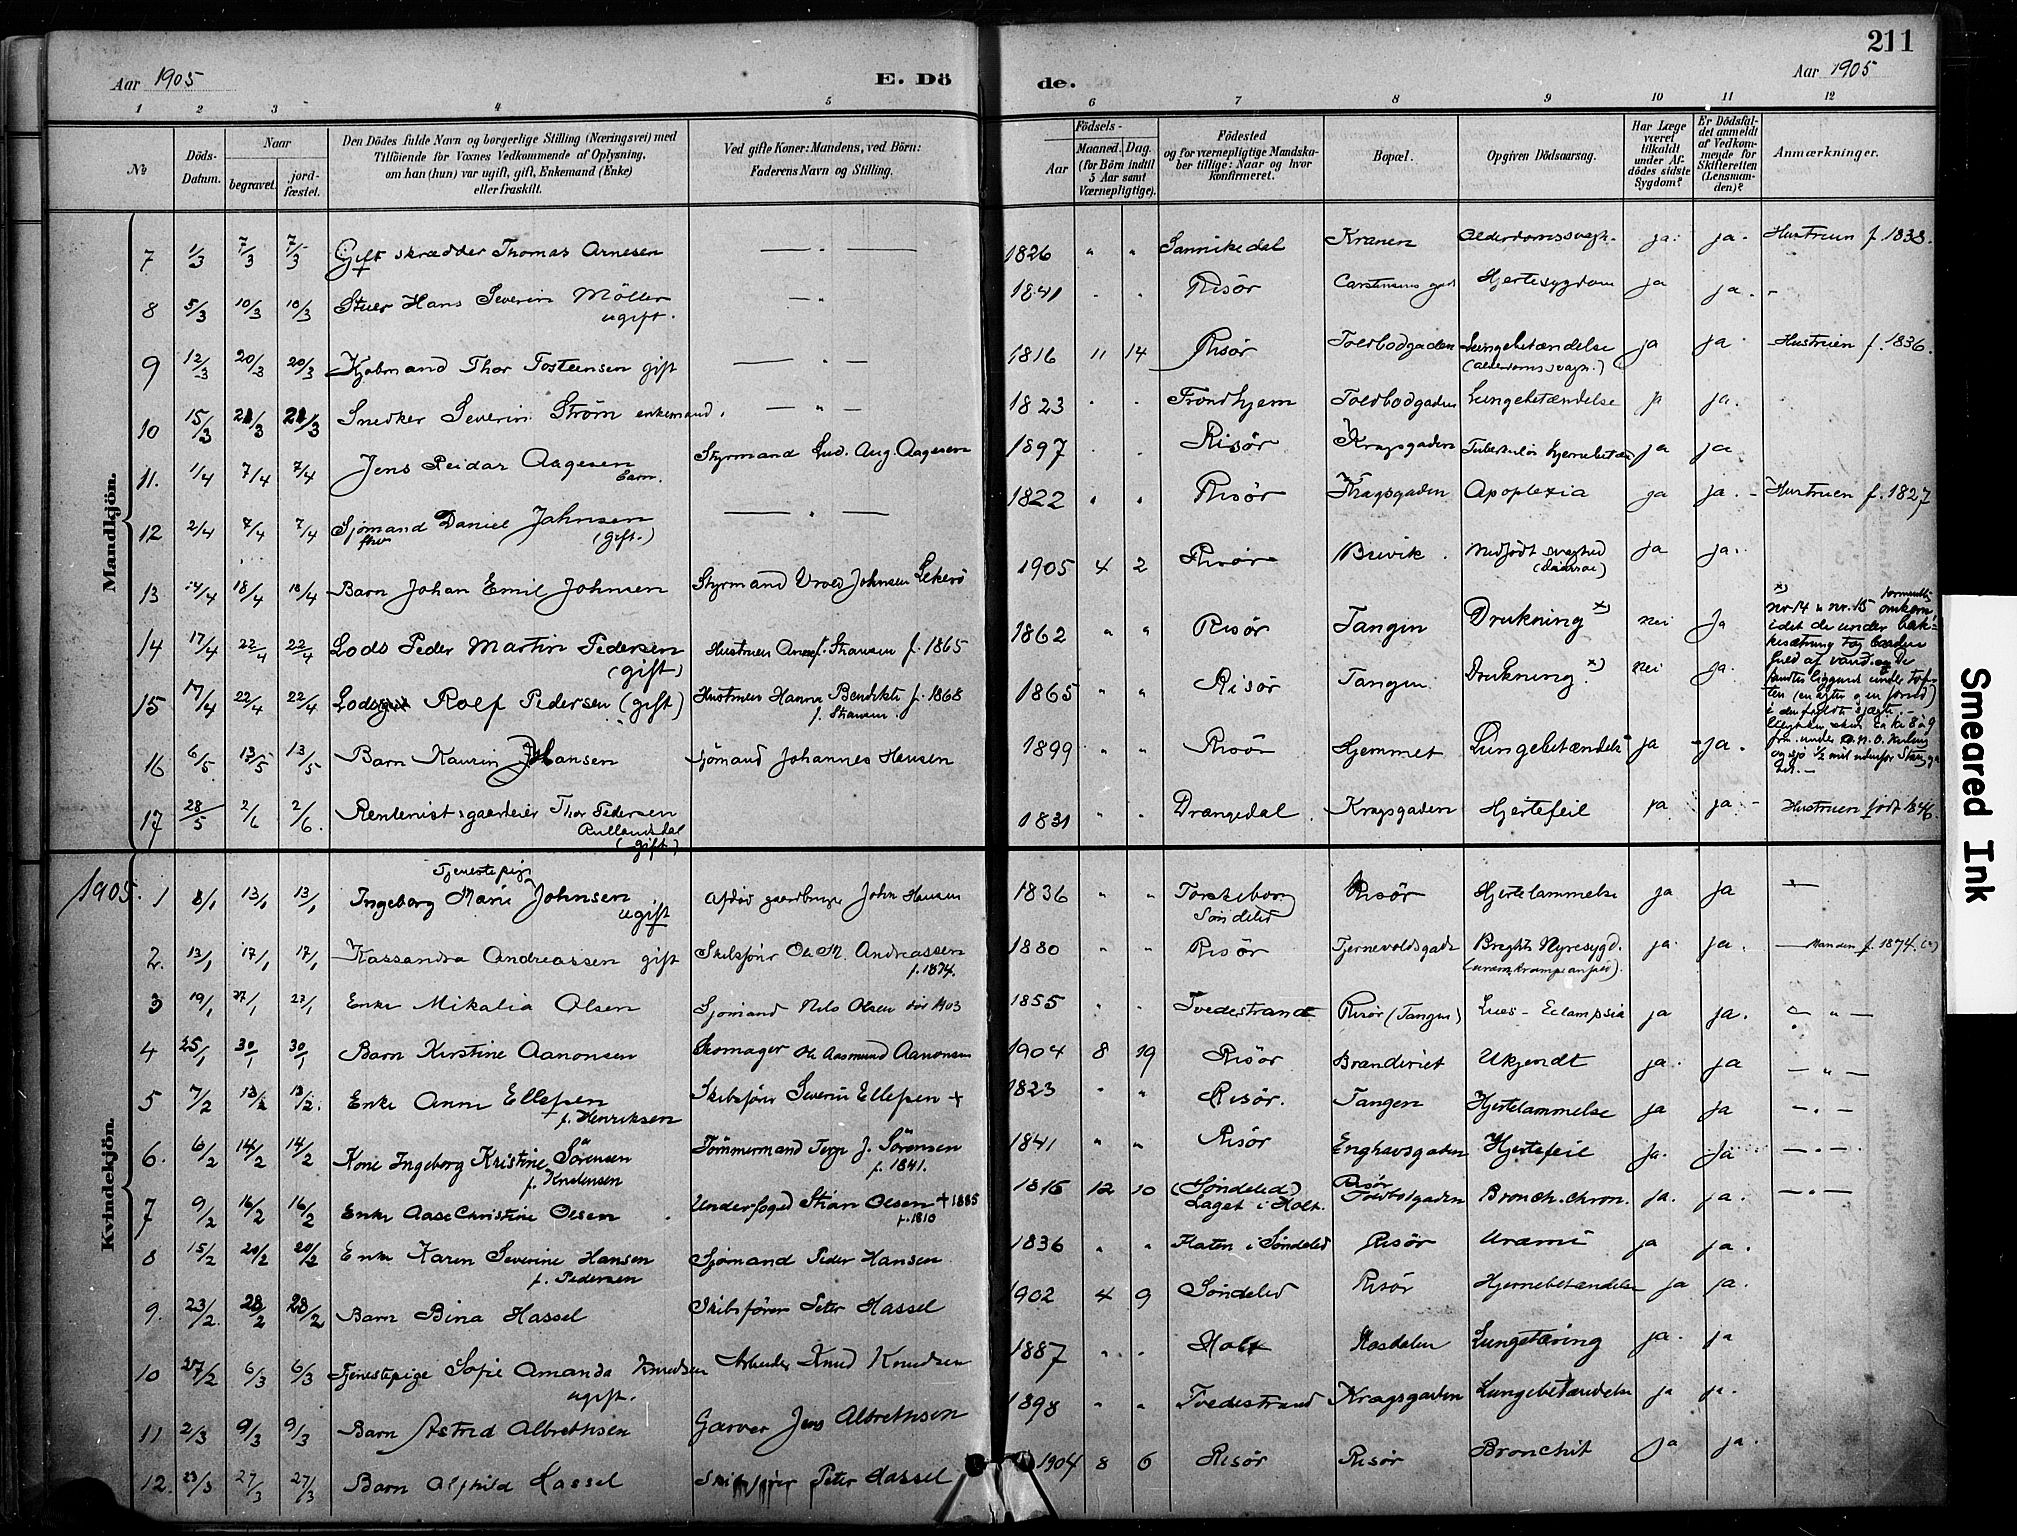 211
Aar 1905
E. Dö
de.
Aar 1905
1 2 3 4 5 6 7 8 9 10 11 12
№
Döds-Datum.
Naar
begravet.
jord-fæstet.
Den Dödes fulde Navn og borgerlige Stilling (Næringsvei) med
Tilföiende for Voxnes Vedkommende af Oplysning,
om han (hun) var ugift, gift, Enkemand (Enke)
eller fraskilt.
Ved gifte Koner: Mandens, ved Börn:
Faderens Navn og Stilling.
Födsels-
Aar
Maaned. Dag.
(for Börn indtil
5 Aar samt
Værnepligtige).
Födested
og for værnepligtige Mandska-
ber tillige: Naar og hvor
konfirmeret.
Bopæl.
Opgiven Dödsaarsag.
Har Læge
været
tilkaldt
under Af-
dödes sidste
Sygdom?
Er Dödsfal-
det anmeldt
af Vedkom-
mende for
Skifteretten
(Lensman-
den)?
Anmærkninger.
Mandkjön.
7 1/3 7/3 7/3 Gift skrædder Thomas Arnesen — " — 1826 " " Sannikedal Kranen Alderdomssvagh. ja. ja. Hustruen f. 1838.
8 5/3 10/3 10/3 Hans Severin Möller ugift. — " 1841 " " Risør Hjertesygdom ja ja. -
9 12/3 20/3 20/3 Kjøbmand Thor Tostensen gift — " — 1816 11 14 Risør Toldbodgaden Lungebetændelse (Alderdomssvagh.) ja ja. Hustruen f. 1836.
10 15/3 21/3 21/3 Snedker Severin Strøm enkemand. — " — 1823 " " Trondhjem Toldbodgaden Lungebetændelse ja ja.
11. 1/4 7/4 7/4 Jens Peidar Aagesen barn. Styrmand Lud. Aug. Aagesen 1897 " " Risör Kragsgaden Tuberkuløs hjernebetæn ja ja
12 2/4 7/4 7/4 Sjømand Daniel Jahnsen (gift.) — " — 1822 " " Risör Kragsgaden Apoplexia ja ja. - Hustruen f. 1827
13 14/4 18/4 18/4 Barn Johan Emil Johnsen Styrmand Johnsen 1905 4 2 Risør Brevik. Medfödt svaghed ja ja.
14 17/4 22/4 22/4 Lods Peder Martin Pedersen (gift) Hustruen f. 1865 1862 " " Risør Tangen Drukning x) nei Ja
15 17/4 22/4 22/4 Lods Rolf Pedersen (gift) Hustruen Hanna Bendikte f. 1868 1865 " " Risør Tangen Drukning. x) nei ja.
x) nr. 14 & nr. 15 omkom
idet de under
16 6/5 13/5 13/5 Barn Kaurin Johansen Sjømand Johannes Hansen 1899 " " Risör Hjemmet Lungebetændelse ja ja.
17 28/5 2/6 2/6. Rentenist & gaardeier Thor Pedersen (gift) 1831 " " Drangedal Kragsgaden Hjertefeil ja ja - Hustruen født 1846.
Kvindekjön.
1905. 1 8/1 13/1 13/1 Tjenestepige Ingeborg Marie Johnsen ugift Afdød gaardbruger John Hansen 1836 " " Torskeberg Søndeled Risør Hjertelammelse ja ja —
2. 13/1 17/1 17/1 Kassandra Andreassen gift Skibsfører Ole M. Andreassen f. 1874. 1880 " " Risør Tjernevoldsgade Brights Nyresygd. ja. ja. — Manden f. 1874.
3 19/1 27/1 27/1 Enke Mikalia Olsen Sjømand Nils Olsen død 1903 1855 " " Tvedestrand Risør (Tangen) Lues - Eclampsia ja ja. — " —
4 25/1 30/1 30/1 Barn Kirstine Aanonsen Skomager Ole Aasmund Aanonsen 1904 8 19 Risør Branderiet Ukjendt ja. ja — " —
5 7/2 13/2 13/2. Enke Anne Ellefsen f. Henriksen Skibsfører Severin Ellefsen + 1823 " " Risør. Tangen Hjertelammelse ja ja — " —
6. 6/2 14/2 14/2 Kone Ingeborg Kristine Sørensen f. Knudsen Tömmermand Terje J. Sørensen f. 1841. 1841 " " Risør Enghavsgaden Hjertefeil ja. Ja — " —
7 9/2 16/2 16/2 Enke Aase Christine Olsen Underfoged Stian Olsen + 1885 f. 1810 1815 12 10 (Søndeled) Laget i Holt. Risør Toldbodgaden Bronch. chron. ja. ja. — " —
8 15/2 20/2 20/2 Enke Karen Severine Hansen f. Pedersen Sjømand Peder Hansen 1836 " " Flaten i Søndeled Risør Uræmi ja ja.
9. 23/2 28/2 28/2 Barn Bina Hassel Skibsfører Peter Hassel 1902 4 9 Søndeled Risør Hjernebetændelse ja ja.
10 27/2 6/3 6/3 Tjenestepige Sofie Amanda Knudsen ugift. Arbeider Knud Knudsen 1887 " " Holt Rosdalen Lungetæring ja. ja
11 2/3 9/3 9/3 Barn Astrid Albrethsen Garver Jens Albrethsen 1898 " " Tvedestrand Kragsgaden Lungebetændelse ja ja.
12. 23/3 27/3 27/3 Barn Alfhild Hassel Skibsfører Peter Hassel 1904 8 6 Risør Risør Bronchit ja ja.
Smeared Ink